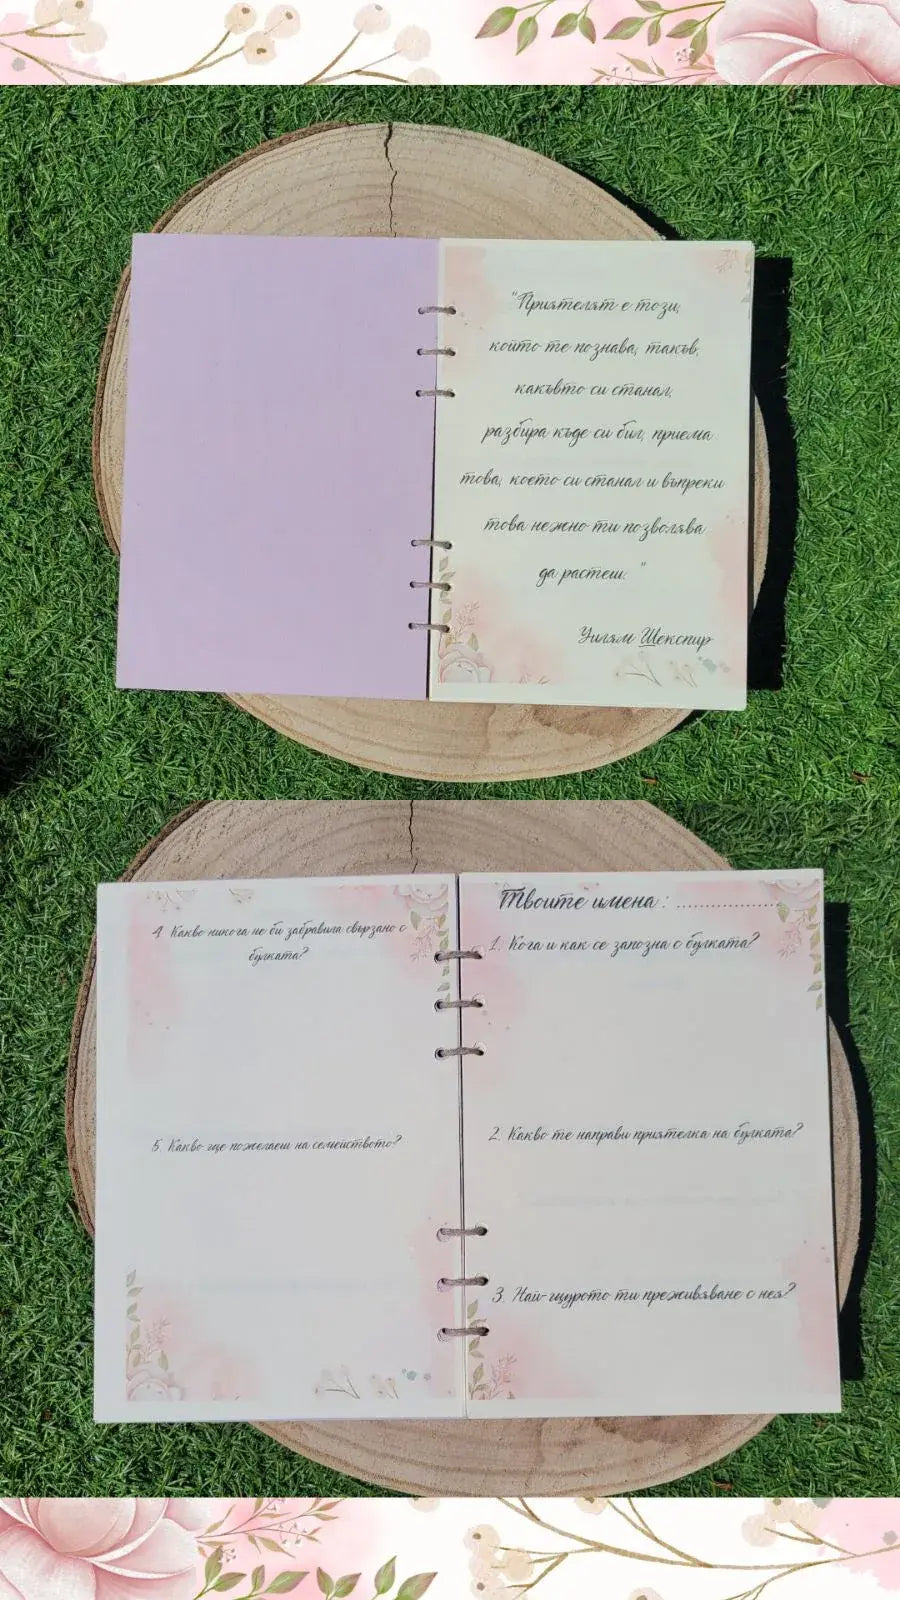 "Приятелят е този,
който те познава, такъв,
какъвто си станал,
разбира къде си бил, приема
това, което си станал и въпреки
това нежно ти позволява
да растеш. "
Уилям Шекспир
4. Какво никога не би забравила свързано с
булката?
5. Какво ще пожелаеш на семейството?
Твоите имена : ..................
1. Кога и как се запозна с булката?
2. Какво те направи приятелка на булката?
3. Най-щурото ти преживяване с нея?